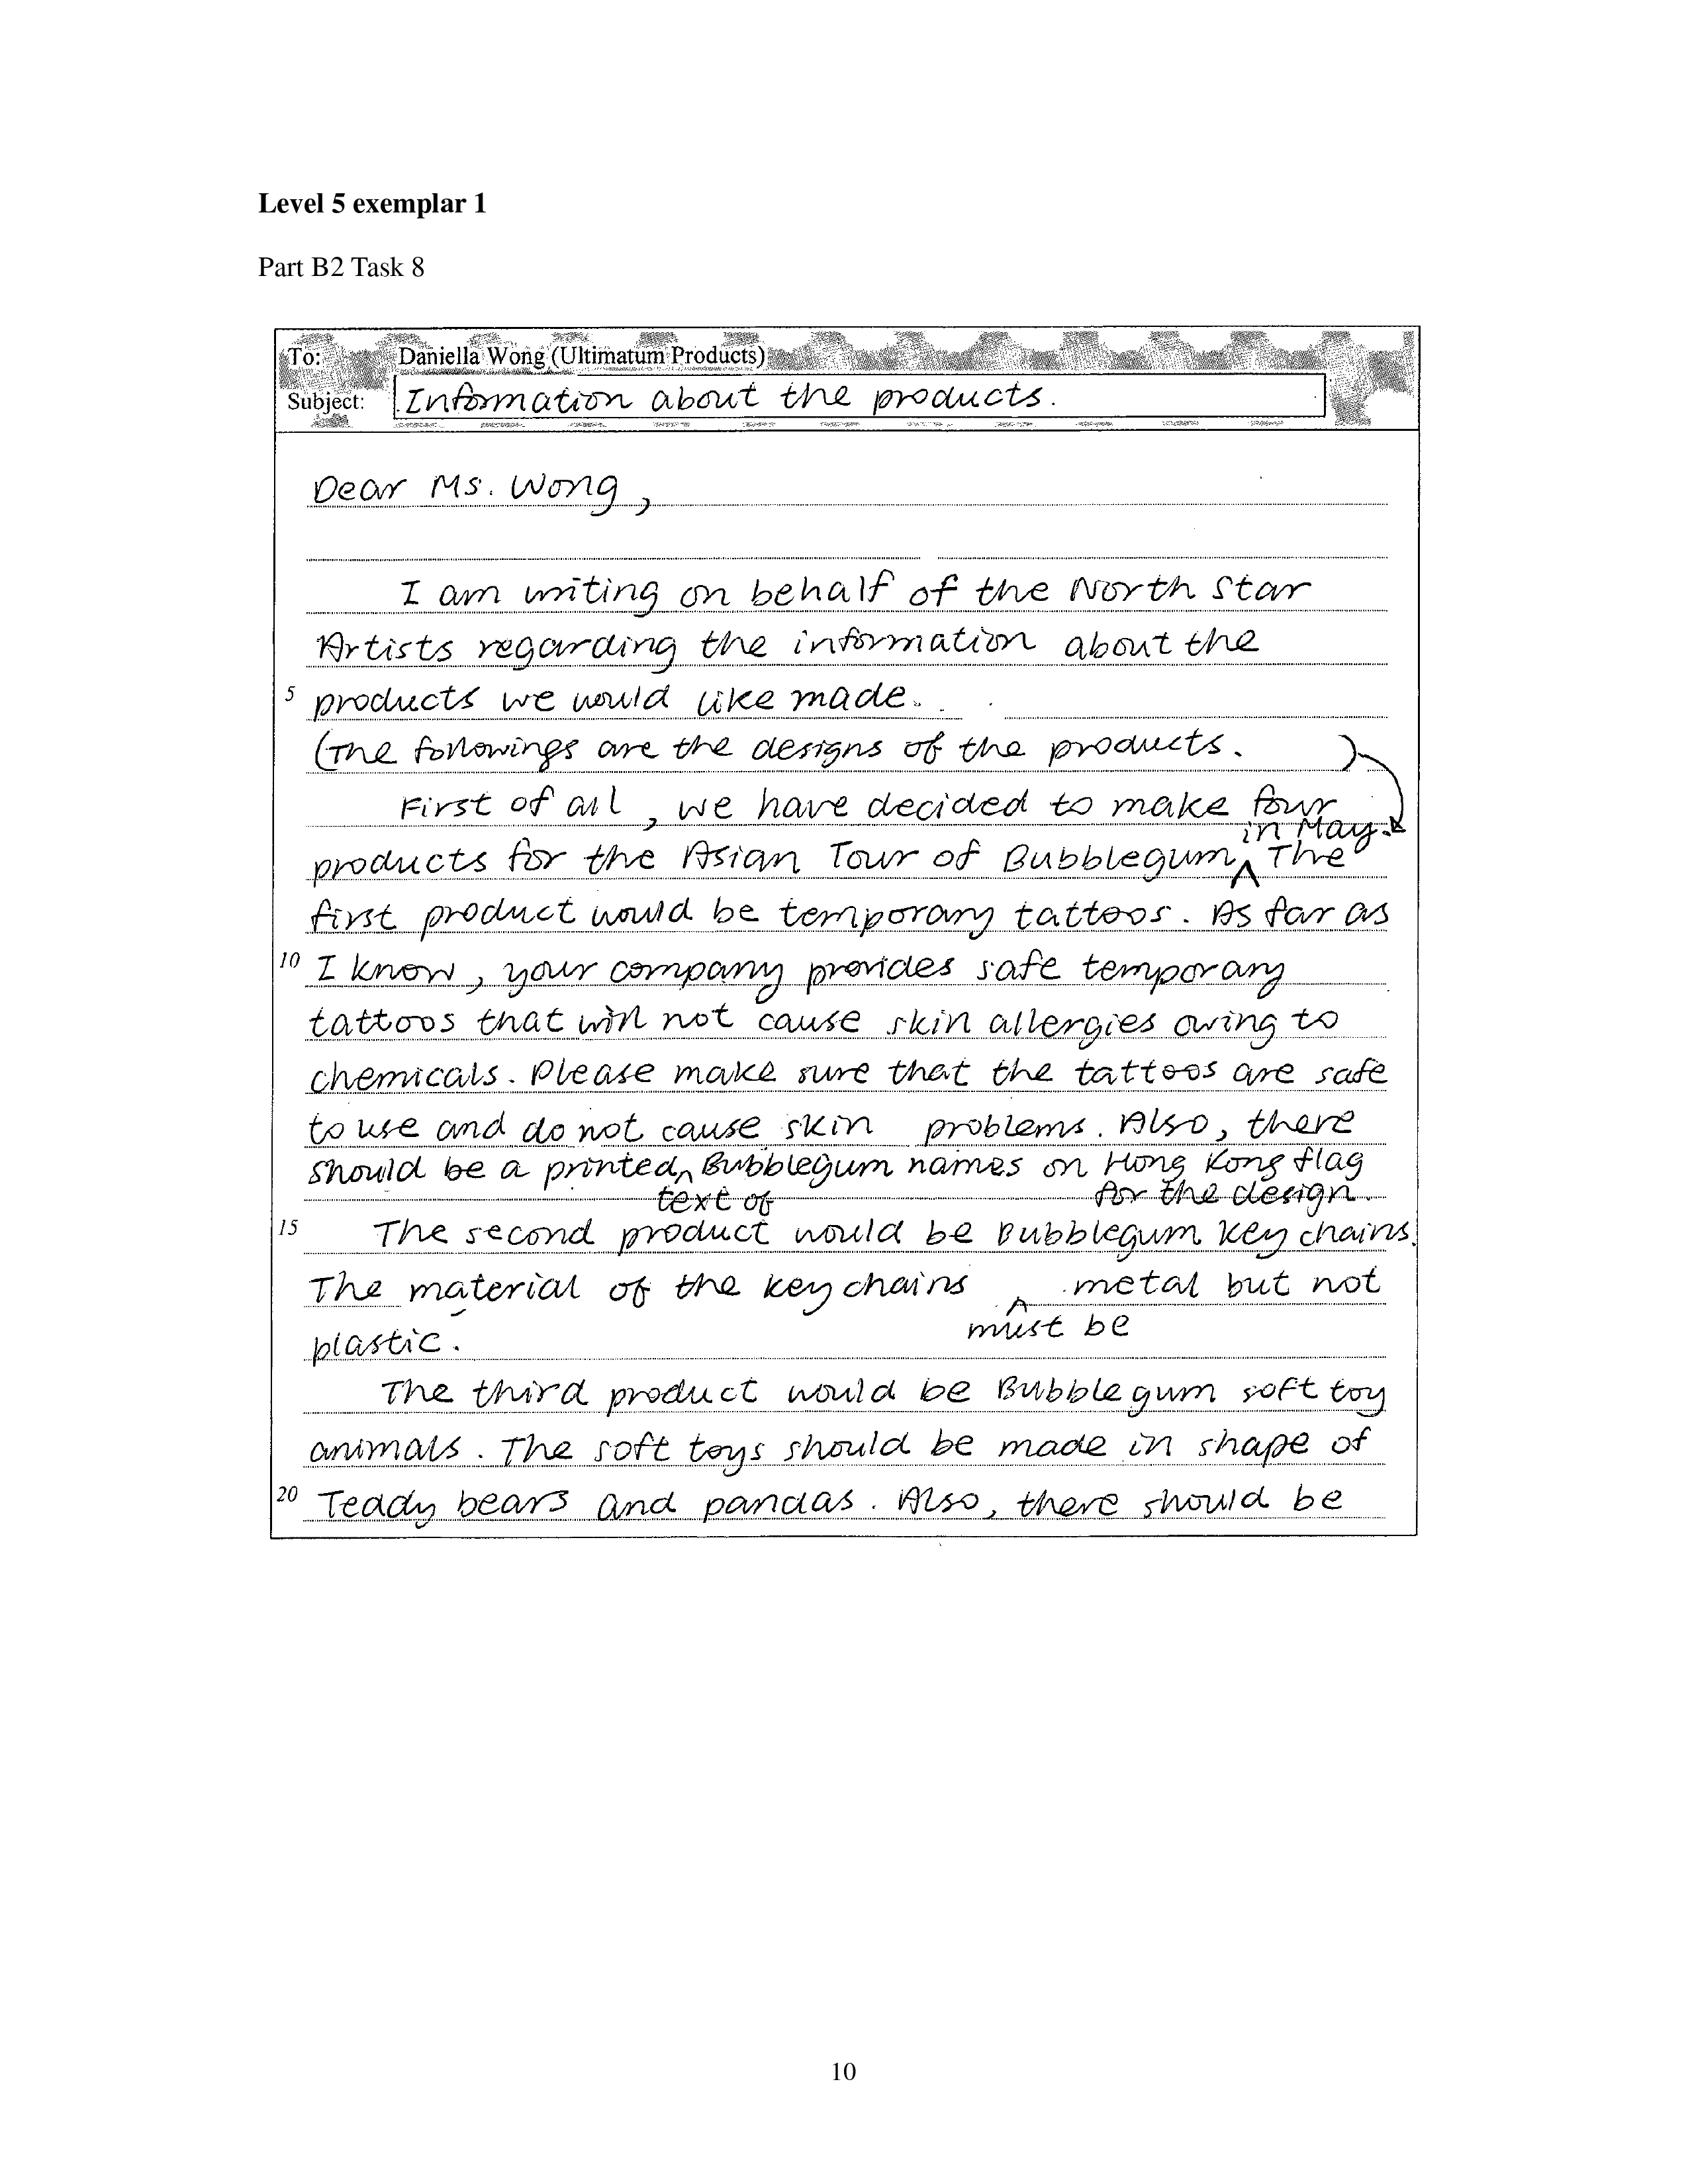 Level 5 exemplar 1
Part B2 Task 8
To: Daniella Wong (Ultimatum Products)
Subject: Information about the products.
Dear Ms. Wong,
I am writing on behalf of the North Star
Artists regarding the information about the
5 products we would like made.
(The followings are the designs of the products. )
First of all, we have decided to make four
in May.
products for the Asian Tour of Bubblegum ^ The
first product would be temporary tattoos. As far as
10 I know, your company provides safe temporary
tattoos that will not cause skin allergies owing to
chemicals. Please make sure that the tattoos are safe
to use and do not cause skin problems. Also, there
should be a printed ^ Bubblegum names on Hong Kong flag
text of for the design.
15 The second product would be Bubblegum key chains.
The material of the key chains ^ metal but not
must be
plastic.
The third product would be Bubblegum soft toy
animals. The soft toys should be made in shape of
20 Teddy bears and pandas. Also, there should be
10